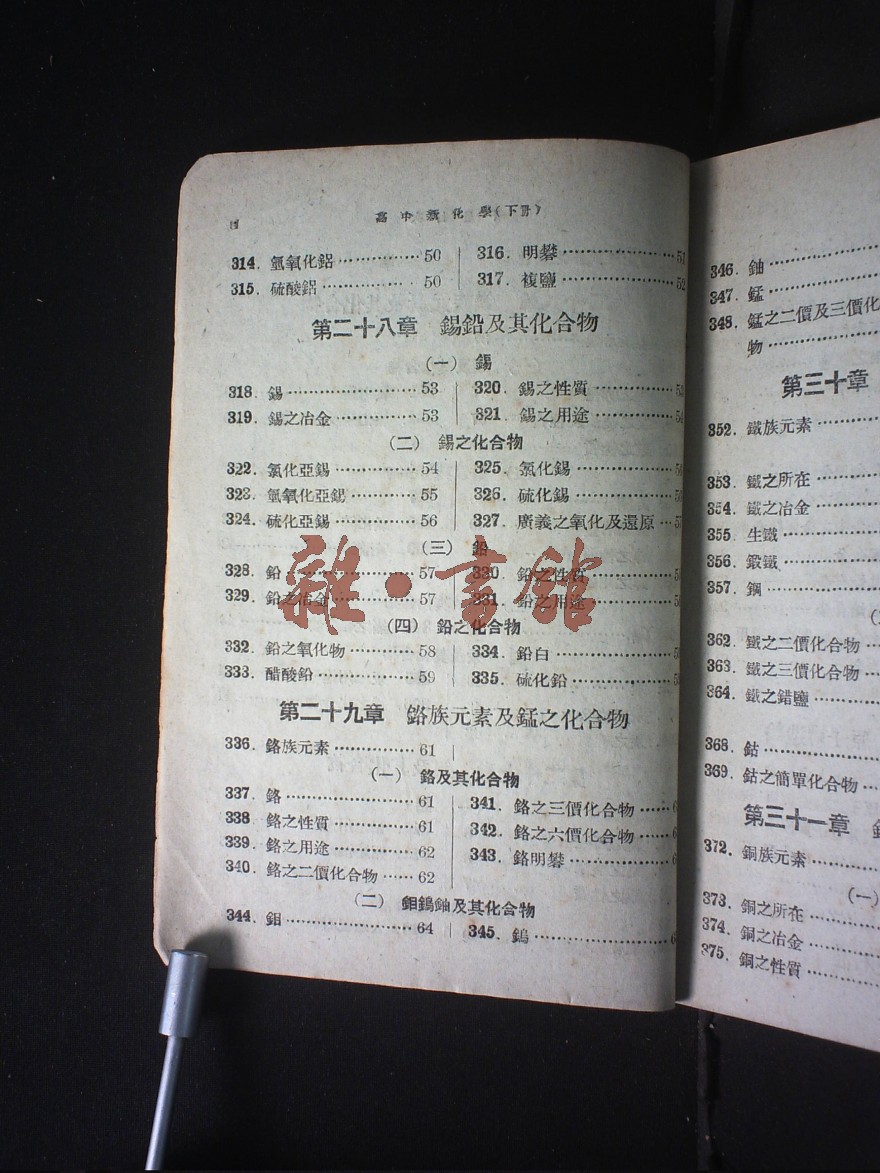 高中新化學(下冊)
314. 氫氧化鋁 50
315. 硫酸鋁 50
316. 明礬 51
317. 複鹽 52
第二十八章 錫鉛及其化合物
(一) 錫
318. 錫 53
319. 錫之冶金 53
320. 錫之性質
321. 錫之用途
(二) 錫之化合物
322. 氯化亞錫 54
323. 氫氧化亞錫 55
324. 硫化亞錫 56
325. 氯化錫
326. 硫化錫
327. 廣義之氧化及還原
(三) 鉛
328. 鉛 57
329. 鉛之冶金 57
330. 鉛之性質
331. 鉛之用途
(四) 鉛之化合物
332. 鉛之氧化物 58
333. 醋酸鉛 59
334. 鉛白
335. 硫化鉛
第二十九章 鉻族元素及錳之化合物
336. 鉻族元素 61
(一) 鉻及其化合物
337. 鉻 61
338. 鉻之性質 61
339. 鉻之用途 62
340. 鉻之二價化合物 62
341. 鉻之三價化合物
342. 鉻之六價化合物
343. 鉻明礬
(二) 鉬鎢鈾及其化合物
344. 鉬 64
345. 鎢
雜·書館
346. 鈾
347. 錳
348. 錳之二價及三價化
物
第三十章
352. 鐵族元素
353. 鐵之所在
354. 鐵之冶金
355. 生鐵
356. 鍛鐵
357. 鋼
362. 鐵之二價化合物
363. 鐵之三價化合物
364. 鐵之錯鹽
368. 鈷
369. 鈷之簡單化合物
第三十一章
372. 銅族元素
(一)
373. 銅之所在
374. 銅之冶金
375. 銅之性質